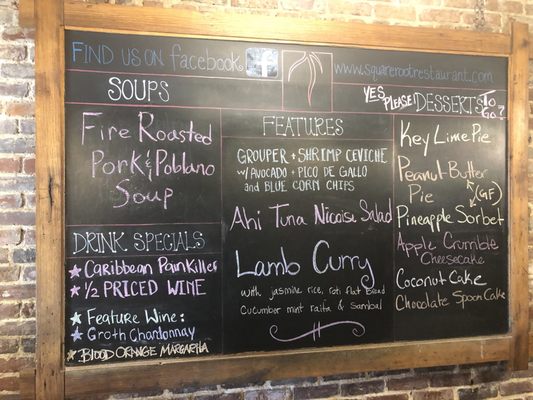 FIND US ON facebook f www.squarerootrestaurant.com
SOUPS
Fire Roasted
Pork & Poblano
Soup
DRINK SPECIALS
★ Caribbean PainKiller
★ 1/2 PRICED WINE
★ Feature Wine:
★ Groth Chardonnay
★ BLOOD ORANGE MARGARITA
FEATURES
GROUPER + SHRIMP CEVICHE
W/ AVOCADO + PICO DE GALLO
and BLUE CORN CHIPS
Ahi Tuna Nicoise Salad
Lamb Curry
with jasmine rice, roti flat bread
Cucumber mint raita & sambal
YES PLEASE DESSERTS TO GO?
Key Lime Pie
Peanut Butter
Pie
(GF)
Pineapple Sorbet
Apple Crumble
Cheesecake
Coconut Cake
Chocolate Spoon Cake